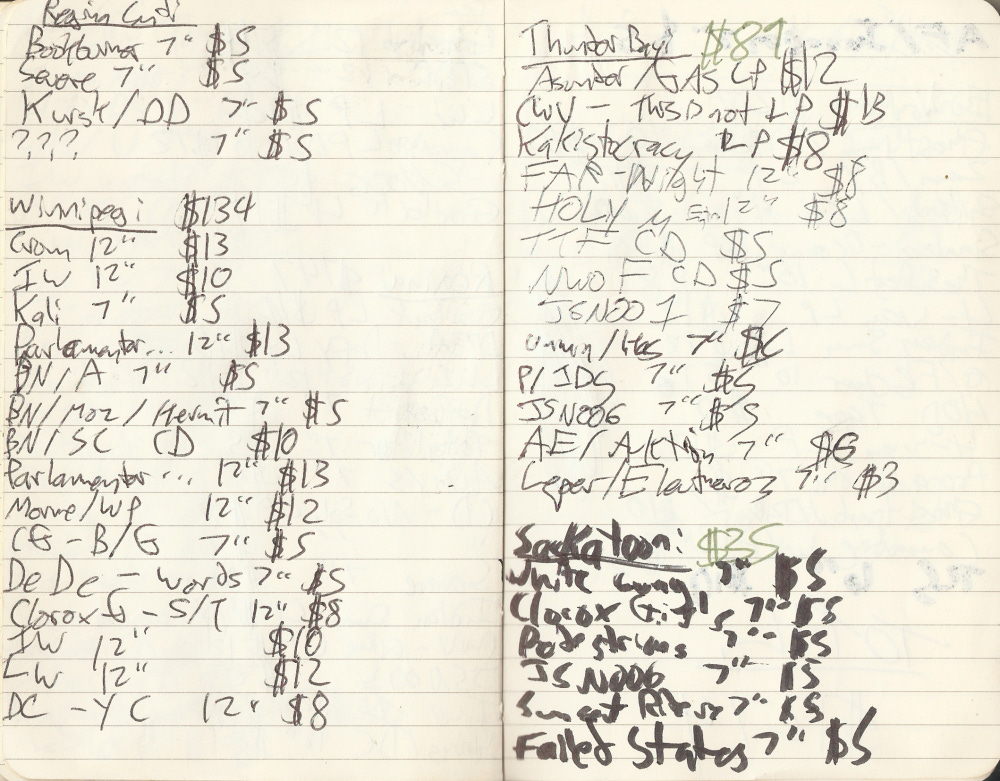 Regina Cont:
Bookburner 7" $5
Severe 7" $5
Kursk/DD 7" $5
??? 7" $5
Winnipeg: $134
Crom 12" $13
IW 12" $10
Kali 7" $5
Parlamentar... 12" $13
BN/A 7" $5
BN/Moz/Hermit 7" $5
BN/SC CD $10
Parlamentar... 12" $13
Morne/WP 12" $12
CG-B/G 7" $5
DeDe - words 7" $5
Clorox G - S/T 12" $8
IW 12" $10
LW 12" $12
DC - YC 12" $8
Thunder Bay: $89
Asunder/GAS LP $12
CWV - This D not LP $13
Kakistocracy LP $8
FAR-Night 12" $8
HOLY M 12" $8
TTF CD $5
NWOF CD $5
JSN001 $7
/ 7" $6
P/JDS 7" $5
JSN006 7" $5
AE/Auktion 7" $6
Leper/Eleutheros 7" $3
Saskatoon: $35
White 7" $5
Clorox Girls 7" $5
Pedestrians 7" $5
JSN006 7" $5
Sweat 7" $5
Failed States 7" $5